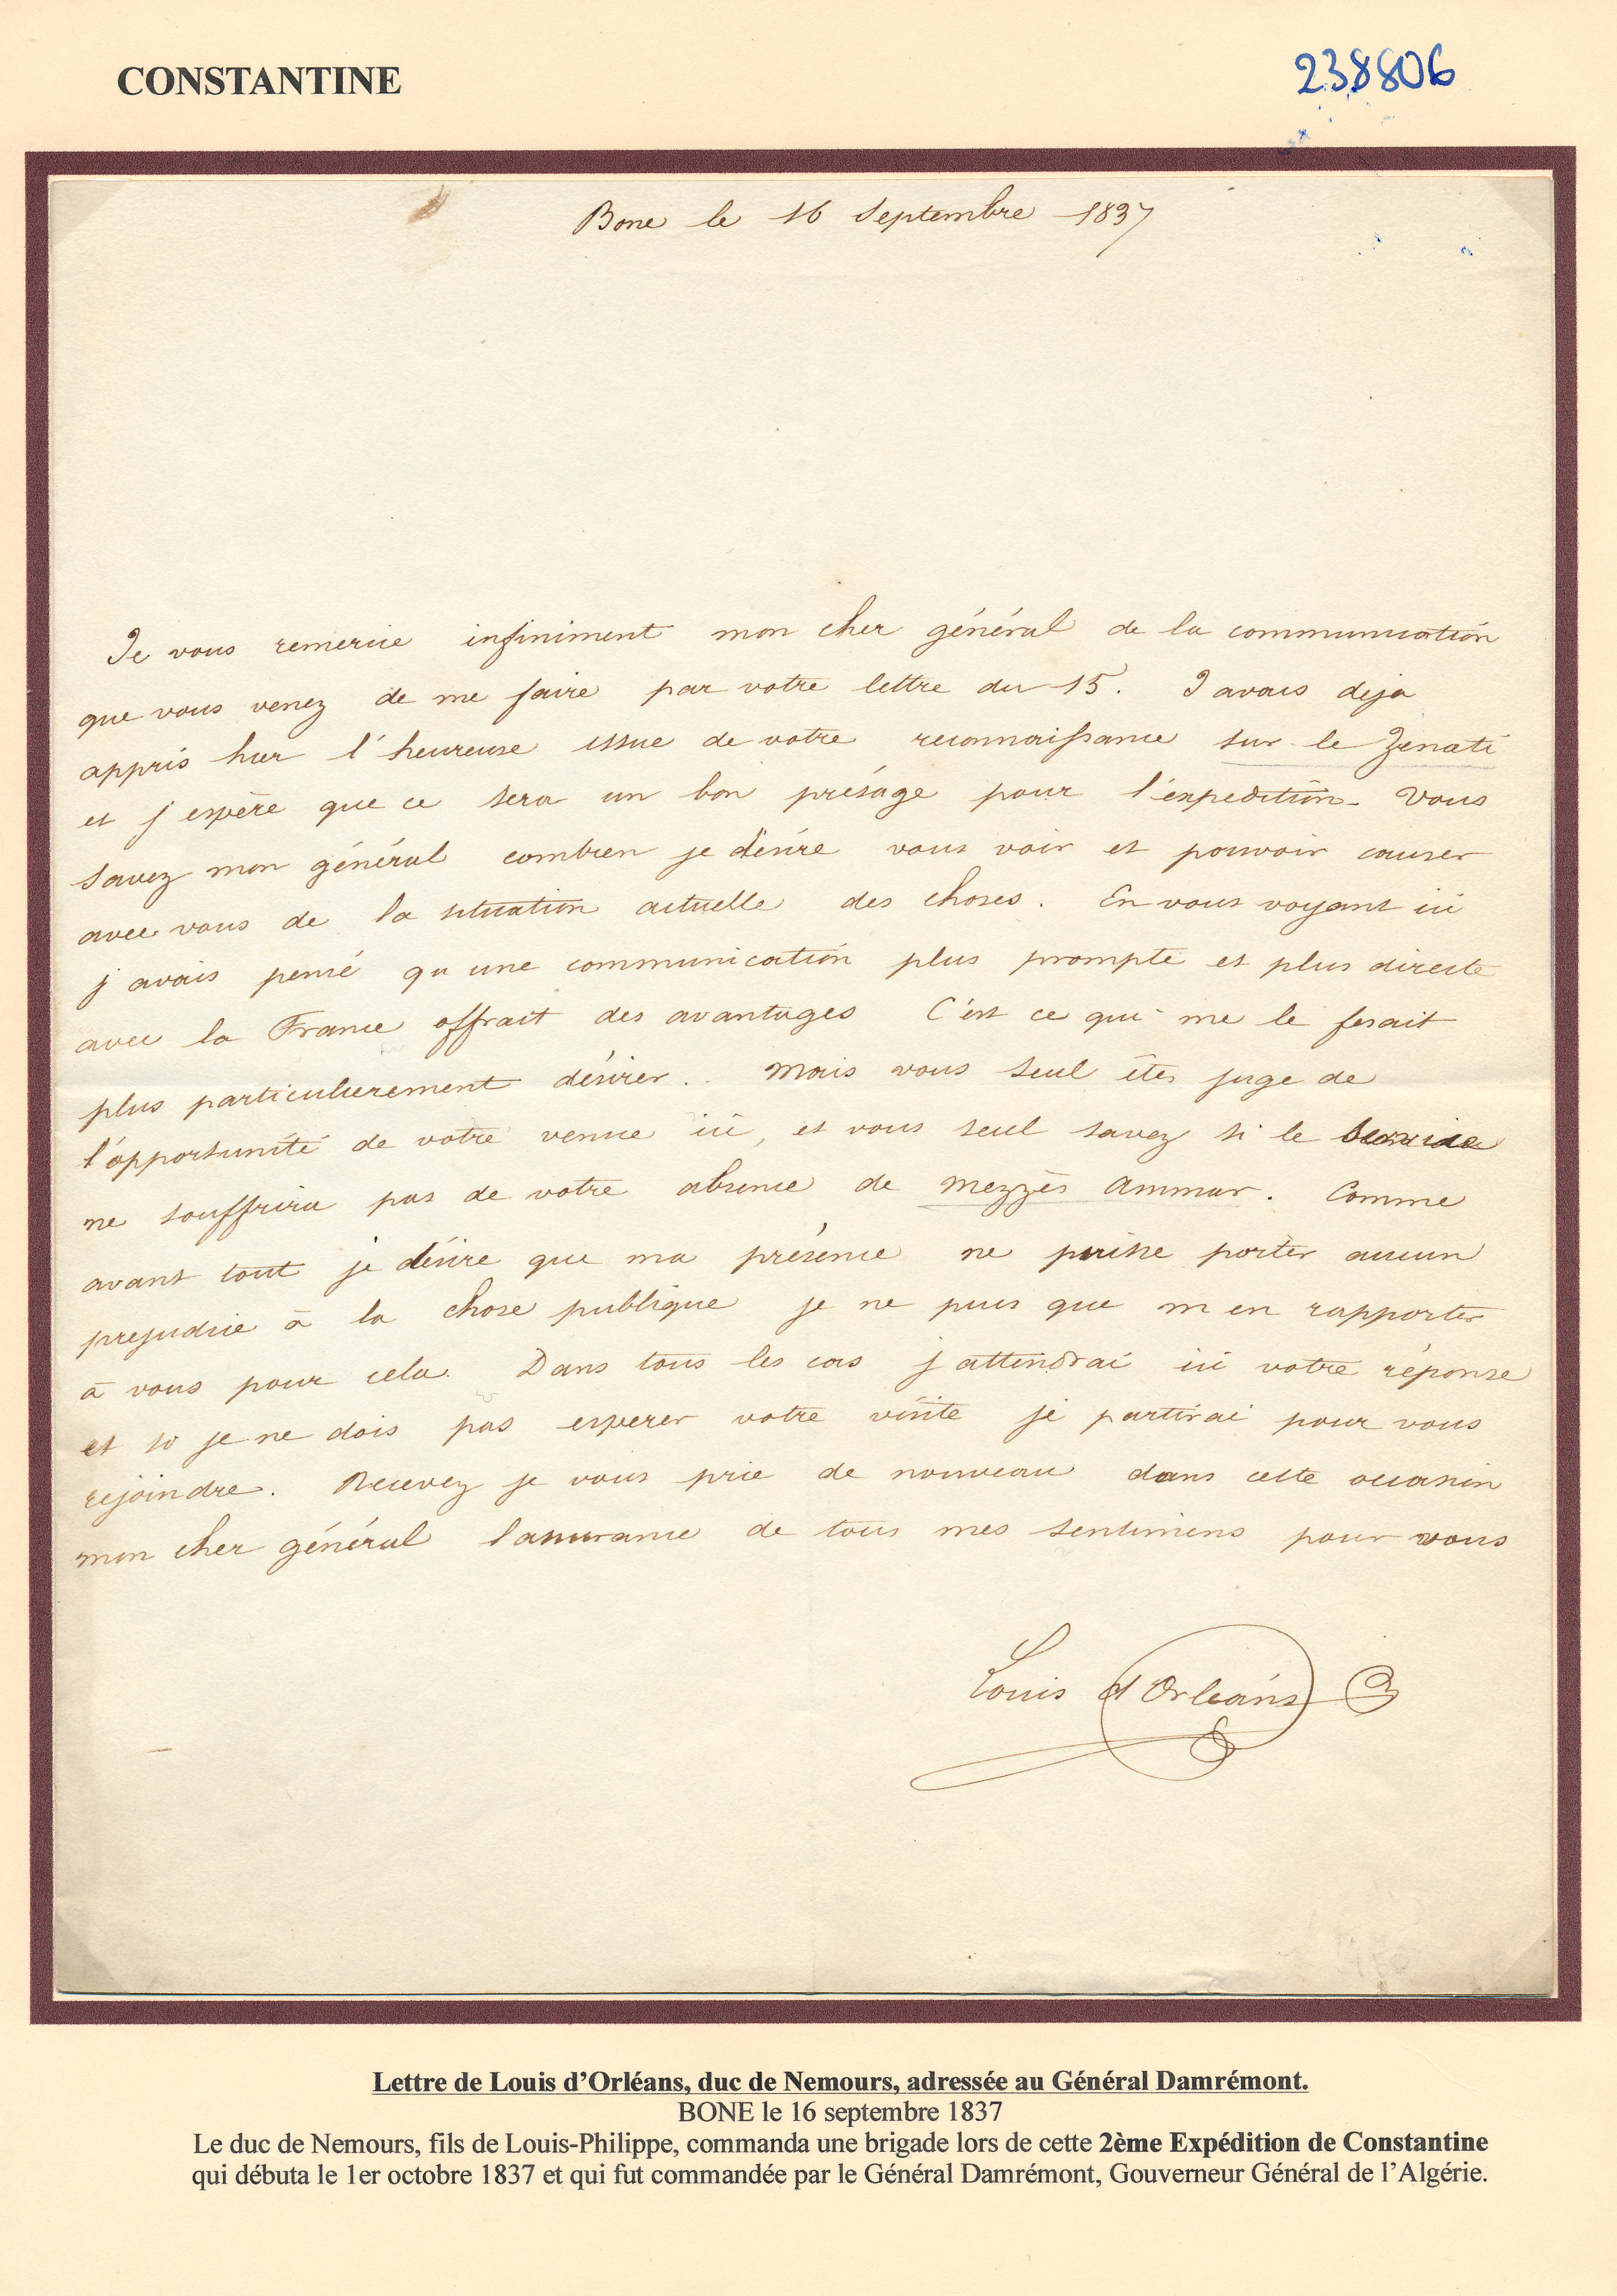 CONSTANTINE
238806
Bone le 16 Septembre 1837
Je vous remercie infiniment mon cher général de la communication
que vous venez de me faire par votre lettre du 15. J avais deja
appris hier l'heureuse issue de votre reconnaissance sur le Zenati
et j espère que ce sera un bon présage pour l'expedition. Vous
savez mon général combien je désire vous voir et pouvoir causer
avec vous de la situation actuelle des choses. En vous voyant ici
j avais pensé qu une communication plus prompte et plus directe
avec la France offrait des avantages C'est ce qui me le ferait
plus particulierement désirer. Mais vous seul êtes juge de
l'opportunité de votre venue ici, et vous seul savez si le service
ne souffrira pas de votre absence de Mezzès Ammar. Comme
avant tout je désire que ma présence ne puisse porter aucun
prejudice à la chose publique je ne puis que m en rapporter
à vous pour cela. Dans tous les cas j attendrai ici votre réponse
et si je ne dois pas esperer votre visite je partirai pour vous
rejoindre. Recevez je vous prie de nouveau dans cette occasion
mon cher général l'assurance de tous mes sentimens pour vous
Louis d'Orléans
Lettre de Louis d'Orléans, duc de Nemours, adressée au Général Damrémont.
BONE le 16 septembre 1837
Le duc de Nemours, fils de Louis-Philippe, commanda une brigade lors de cette 2ème Expédition de Constantine
qui débuta le 1er octobre 1837 et qui fut commandée par le Général Damrémont, Gouverneur Général de l'Algérie.